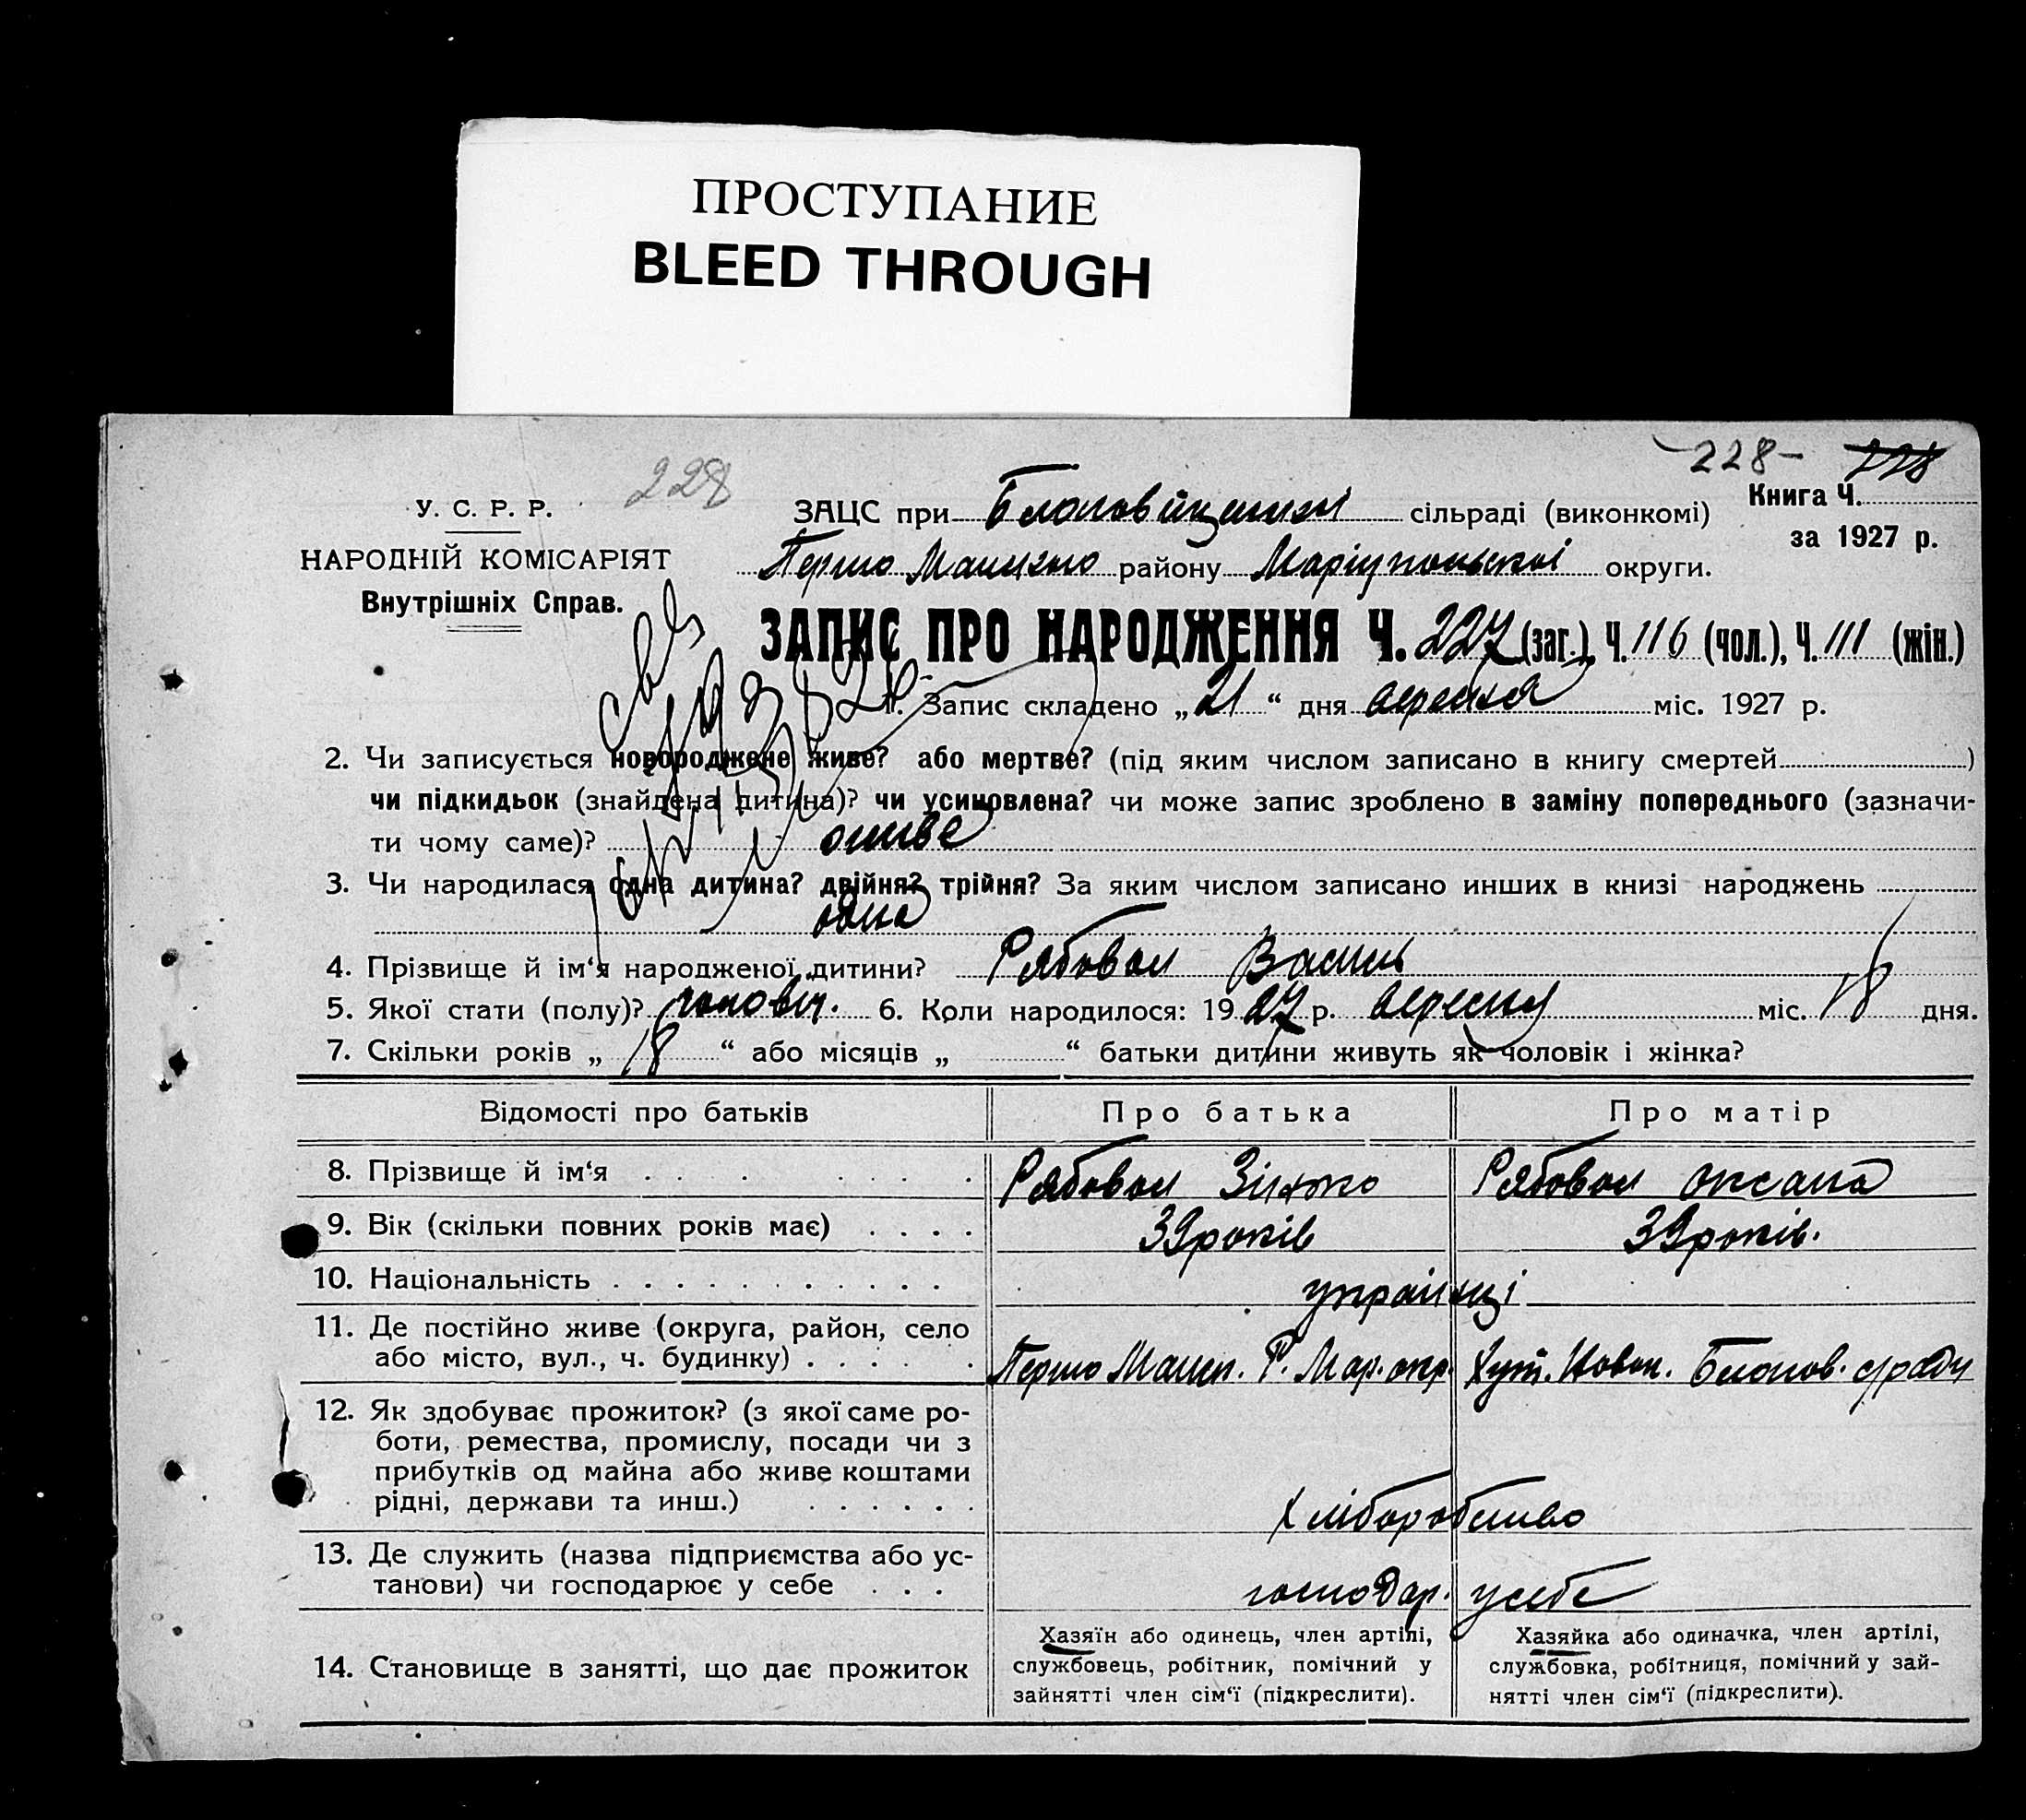 ПРОСТУПАНИЕ
BLEED THROUGH
228- 228
228
У. С. Р. Р.
НАРОДНІЙ КОМІСАРІЯТ
Внутрішніх Справ.
ЗАЦС при сільраді (виконкомі) Книга Ч.
за 1927 р.
Першо району Маріупольської округи.
ЗАПИС ПРО НАРОДЖЕННЯ Ч. 227 (заг.), Ч. 116 (чол.), Ч. 111 (жін.)
1. Запис складено „ 21 “ дня вересня міс. 1927 р.
2. Чи записується новороджене живе? або мертве? (під яким числом записано в книгу смертей )
чи підкидьок (знайдена дитина)? чи усиновлена? чи може запис зроблено в заміну попереднього (зазначи-
ти чому саме)? живе
3. Чи народилася одна дитина? двійня? трійня? За яким числом записано инших в книзі народжень
одна
4. Прізвище й ім‘я народженої дитини? Рябовол Василь
5. Якої стати (полу)? чоловіч. 6. Коли народилося: 1927 р. вересня міс. 18 дня.
7. Скільки років „ 18 “ або місяців „ “ батьки дитини живуть як чоловік і жінка?
Відомості про батьків Про батька Про матір
8. Прізвище й ім‘я Рябовол Зінько Рябовол Оксана
9. Вік (скільки повних років має) 39 років 39 років.
10. Національність українці
11. Де постійно живе (округа, район, село
або місто, вул., ч. будинку) Першо Р. Мар. окр. Хут. с/ради
12. Як здобуває прожиток? (з якої саме ро-
боти, ремества, промислу, посади чи з
прибутків од майна або живе коштами
рідні, держави та инш.) Хліборобство
13. Де служить (назва підприємства або ус-
танови) чи господарює у себе господар. у себе
14. Становище в занятті, що дає прожиток
Хазяїн або одинець, член артілі,
службовець, робітник, помічний у
зайнятті член сім‘ї (підкреслити).
Хазяйка або одиначка, член артілі,
службовка, робітниця, помічний у зай-
нятті член сім‘ї (підкреслити).